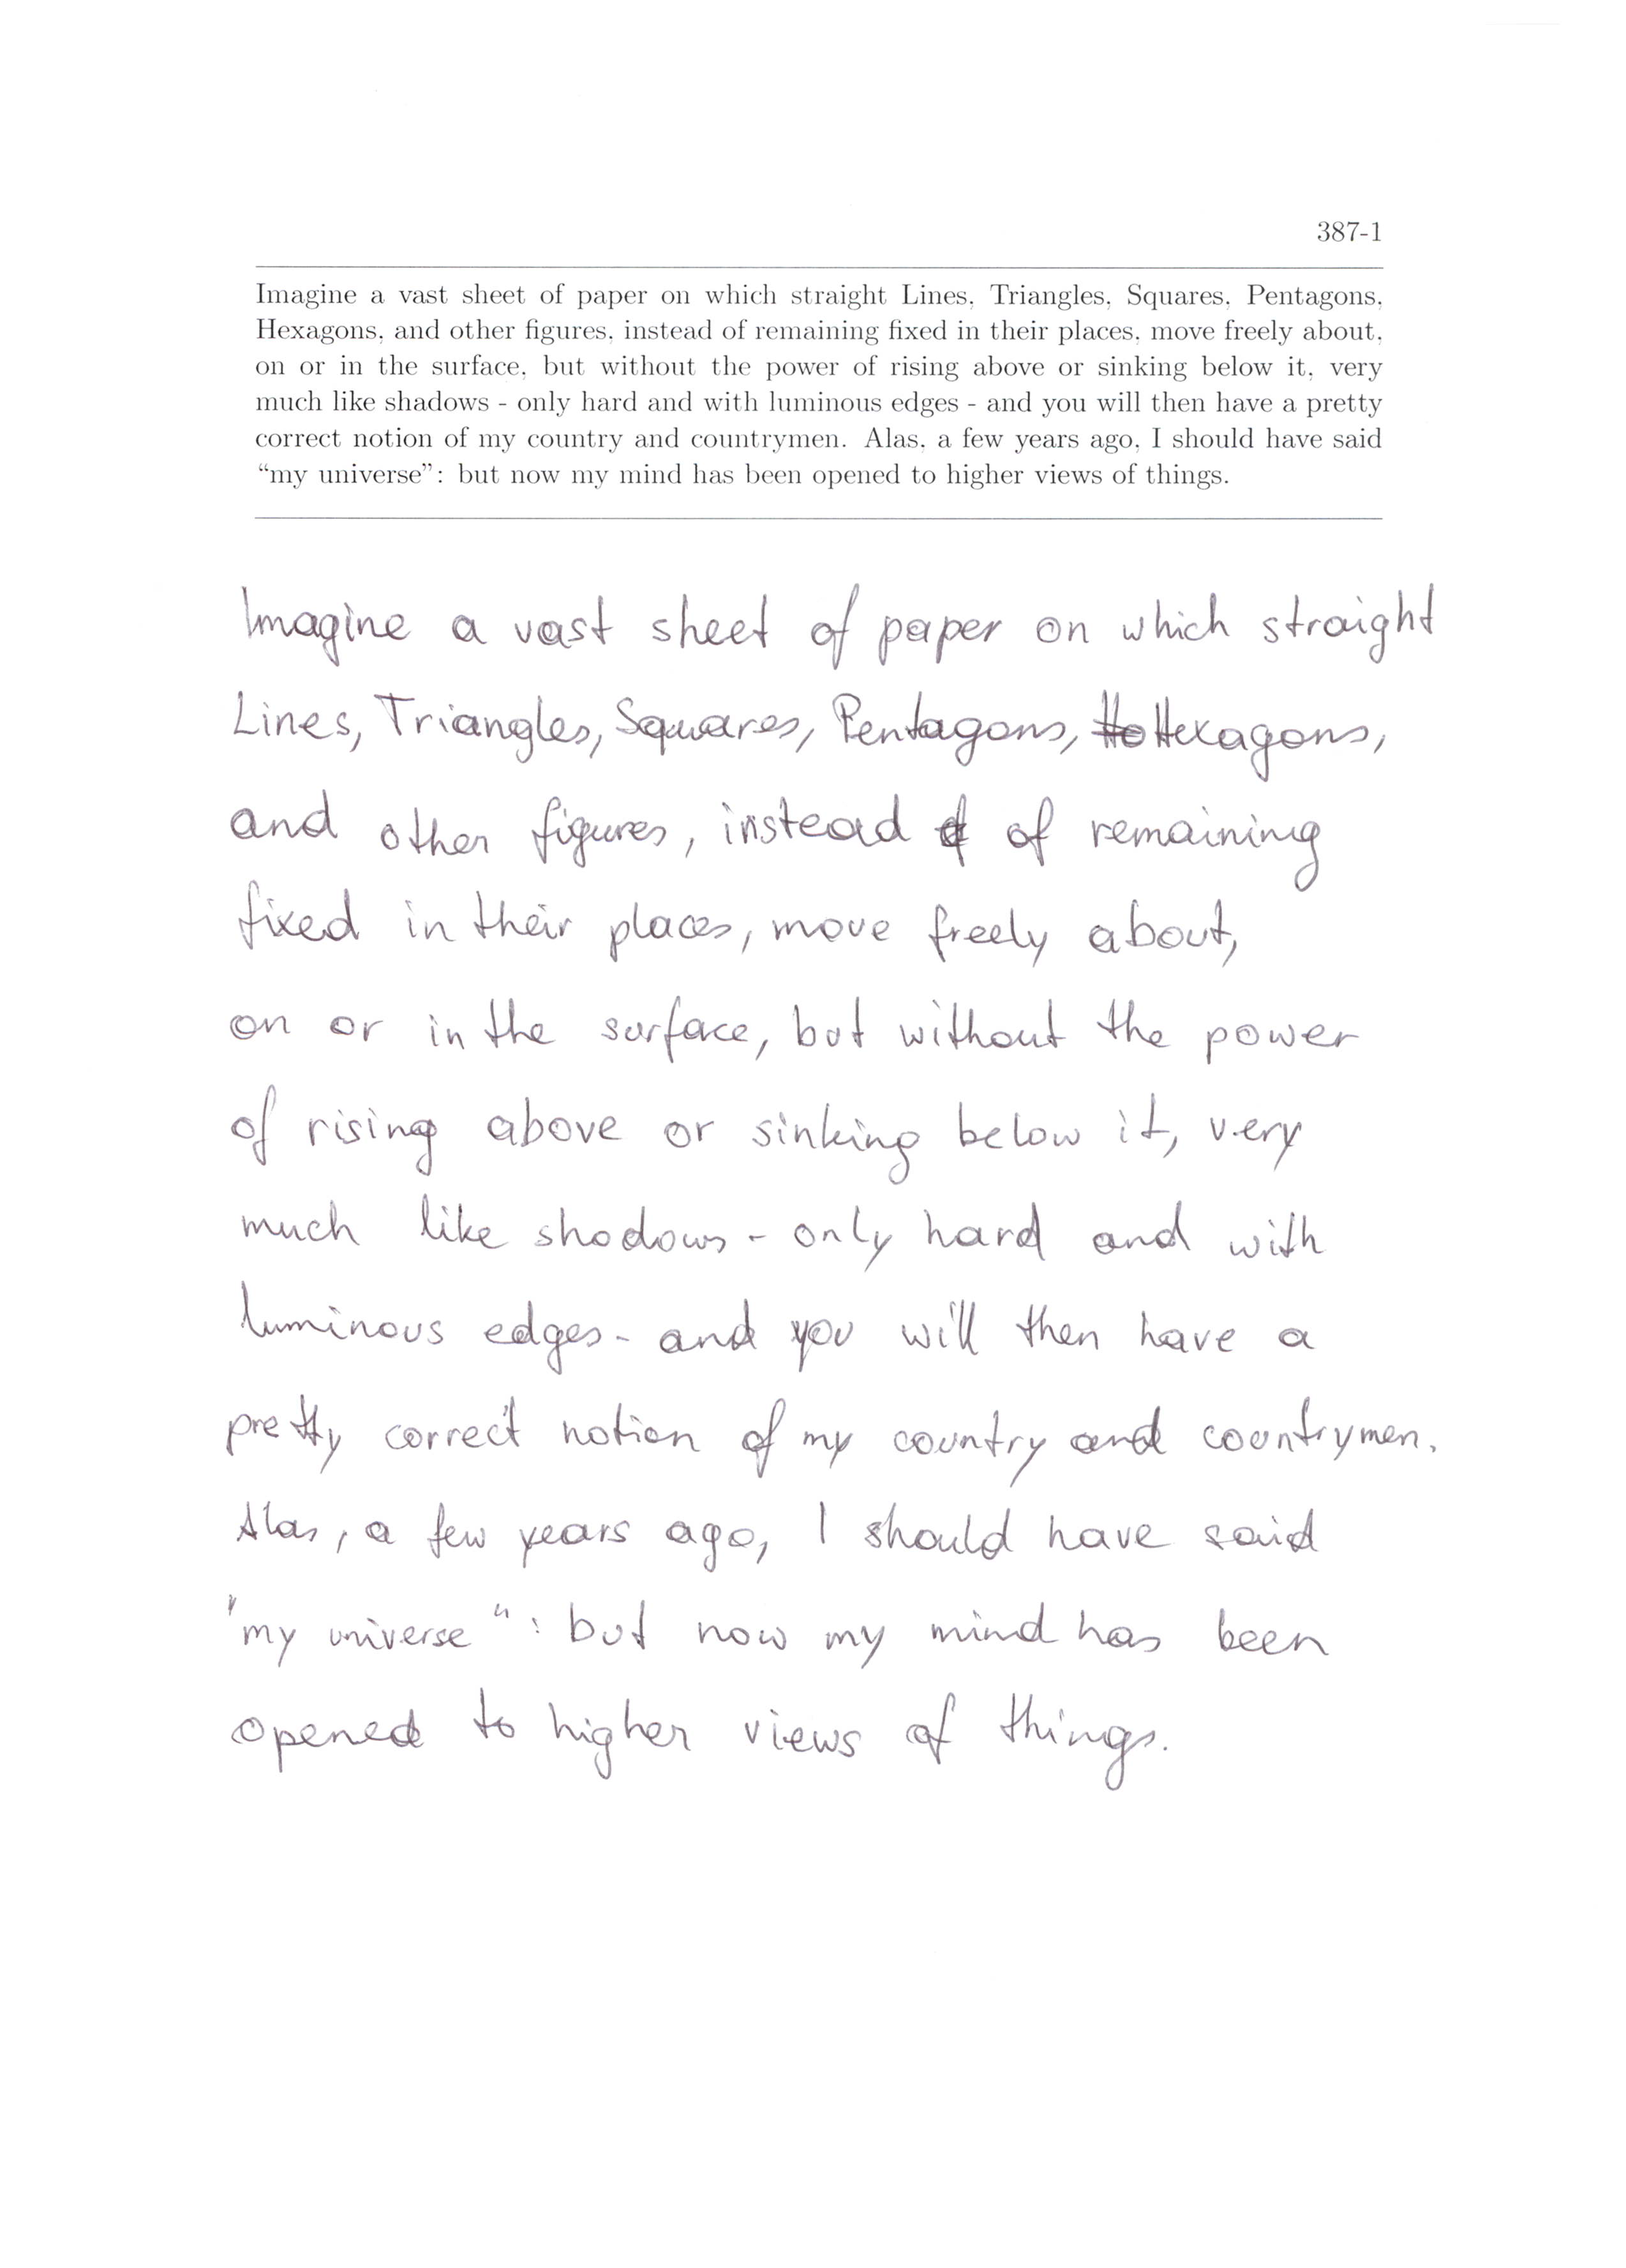 387-1
Imagine a vast sheet of paper on which straight Lines, Triangles, Squares, Pentagons,
Hexagons, and other figures, instead of remaining fixed in their places, move freely about,
on or in the surface, but without the power of rising above or sinking below it, very
much like shadows - only hard and with luminous edges - and you will then have a pretty
correct notion of my country and countrymen. Alas, a few years ago, I should have said
“my universe”: but now my mind has been opened to higher views of things.
Imagine a vast sheet of paper on which straight
Lines, Triangles, Squares, Pentagons, Hexagons,
and other figures, instead of remaining
fixed in their places, move freely about,
on or in the surface, but without the power
of rising above or sinking below it, very
much like shadows - only hard and with
luminous edges - and you will then have a
pretty correct notion of my country and countrymen.
Alas, a few years ago, I should have said
"my universe": but now my mind has been
opened to higher views of things.